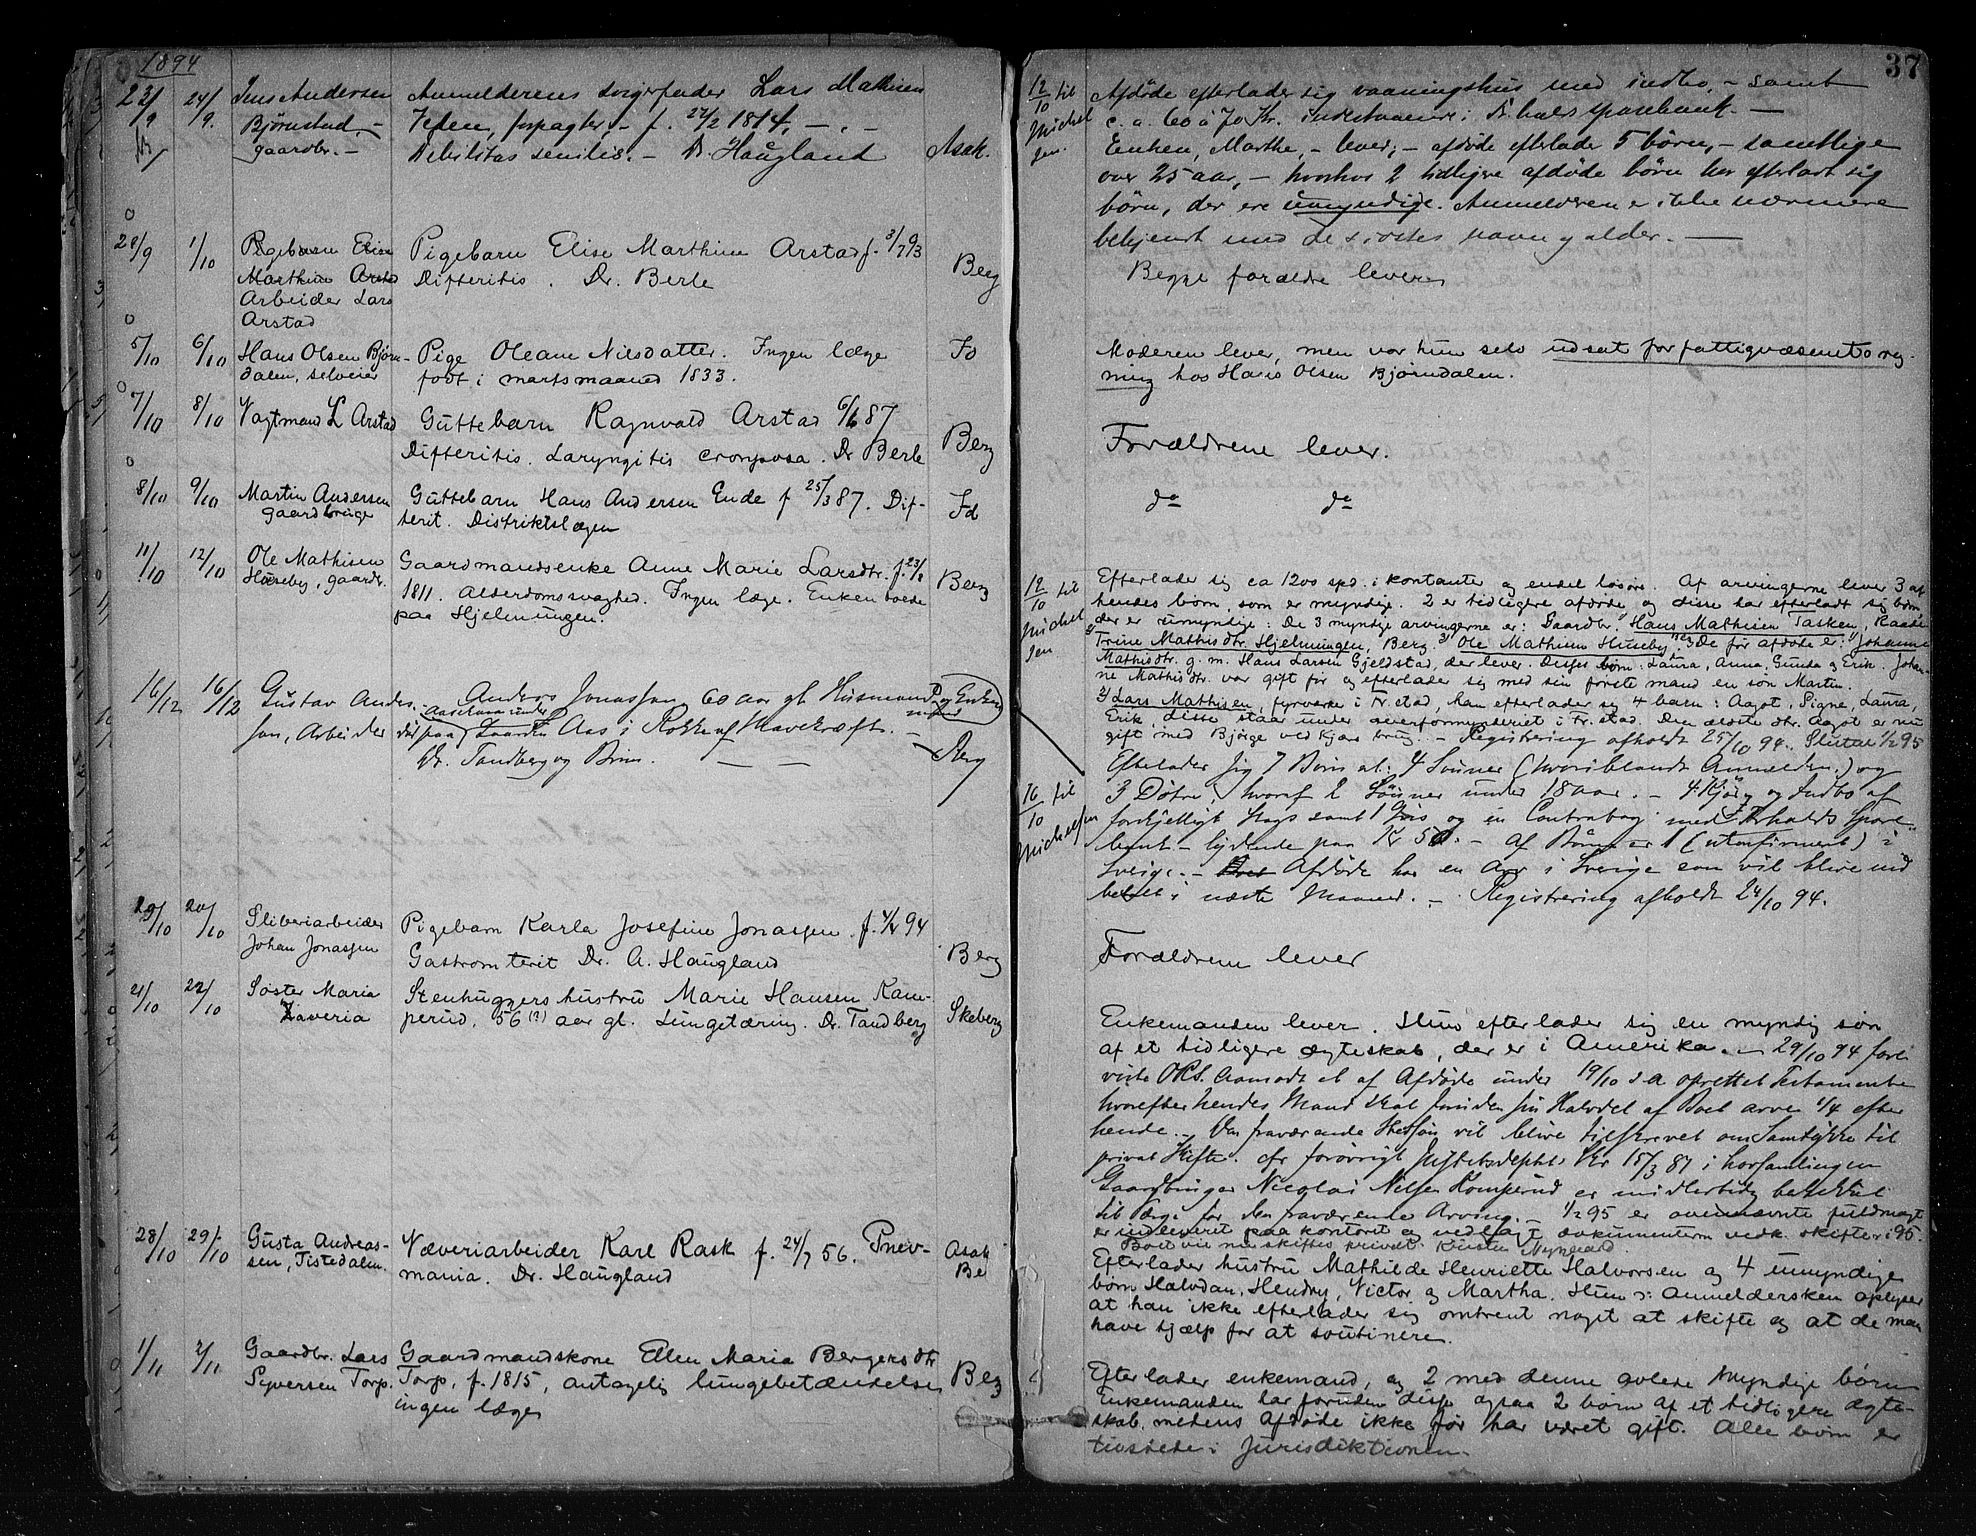 1894
37
23/9 24/9. Jens Andersen Anmelderens svigerfader Lars Mathisen
Bjørnstad, - Vefen, forpagter, - f. 22/2 1814, -, -
gaardbr. - Debilitas senilis. - Dr. Haugland Asak.
28/9 1/10 Pigebarn Elise Pigebarn Elise Marthine Arstad f. 3/7 93
Marthine Arstad Difteritis. Dr. Berle Berg
Arbeider Lars
Arstad
5/10 6/10 Hans Olsen Bjørn- Pige Oleane Nilsdatter. Ingen læge Id
dalen, selveier født i martsmaaned 1833.
7/10 8/10 Vagtmand L Arstad Guttebarn Ragnvald Arstad 6/6 87
Difteritis. Laryngitis crouposa. Dr Berle Berg
8/10 9/10 Martin Andersen Guttebarn Hans Andersen Ende f 25/3 87. Dif-
gaardbruger terit. Distriktslægen Id
11/10 12/10 Ole Mathisen Gaardmandsenke Anne Marie Larsdtr. f. 23/2
Huseby, gaardbr. 1811. Alderdomssvaghed. Ingen læge. Enken boede Berg
paa Hjelmungen.
16/12 16/12 Gustav Anders- Anders Jonassen 60 aar gl. Husmand og Enkem.
sen, Arbeider død paa Aas i Rokke af Mavekræft. -
Dr. Tandberg og Brun. - - Berg
29/10 20/10 Sliberiarbeider Pigebarn Karla Josefine Jonassen. f. 4/4 94
Johan Jonassen Gastroenterit Dr. A. Haugland Berg
21/10 22/10 Søster Maria Stenhuggers hustru Marie Hansen Kam-
Xaveria perud, 56 (?) aar gl. Lungetæring. Dr. Tandberg Skeberg
28/10 29/10 Gusta Andreas- Væveriarbeider Karl Rask f. 24/7 56. Pnev-
sen, Tistedalen. monia. Dr. Haugland Asak
Be
1/11 2/11 Gaardbr. Lars Gaardmandskone Ellen Maria Bergersdtr
Syversen Torp. Torp, f. 1815, antagelig lungebetændelse Berg
ingen læge
12/10 til Afdøde efterlader sig vaaningshus med indbo, - samt
Michel c. a. 60 à 70 Kr. indestaaende i F.halds sparebank. -
sen. Enken, Marthe, - lever; - afdøde efterlader 5 børn, - samtlige
over 25 aar, - hvorhos 2 tidligere afdøde børn har efterladt sig
børn, der ere umyndige. Anmelderen er ikke nærmere
bekjendt med de sidstes navne og alder. -
Begge forældre lever
Moderen lever, men var hun selv udsat for fattigvæsenets reg-
ning hos Hans Olsen Bjørndalen.
Forældrene lever.
do do
12/10 til Efterlader sig ca 1200 spd. i kontanter og endel løsøre. Af arvingerne lever 3 af
Michel hendes børn, som er myndige. 2 er tidligere afdøde og disse har efterladt sig børn
sen der er umyndige: De 3 myndige arvingerne er: Gaardbr. Hans Mathisen Tasken, Raade
Trine Mathisdtr. Hjelmungen, Berg. 3) Ole Mathisen Huseby, Berg De før afdøde er: 1) Johanne
Mathisdtr. g. m. Hans Larsen Gjeldstad, der lever. Disses børn: Laura, Anna, Gunda og Erik. Johan-
ne Mathisdtr. var gift før og efterlader sig med sin første mand en søn Martin.
2) Lars Mathisen, fyrverker i Fr.stad, han efterlader sig 4 barn: Aagot, Signe, Laura,
Erik, disse staar under overformynderiet i Fr.stad. Den ældste dtr. Aagot er nu
gift med Bjørge ved Kjær brug. - Registrering afholdt 25/10 94. Sluttet 1/2 95
Efterlader sig 7 Børn al: 4 Sønner (hvoriblandt Anmelderen) og
16/10 til 3 Døtre, hvoraf 2 Sønner under 18 aar. - 4 Kjør og Indbo af
Michelsen forskjelligt Slags samt 1 Gris og en Contrabog med F.halds Spare-
bank - lydende paa Kr 50. - Af Børn er 1 (ukonfirmeret) i
Sverige. - Afdøde har en Arv i Sverige som vil blive ud
betalt i næste Maaned. - Registrering afholdt 24/10 94.
Forældrene lever
Enkemanden lever. Hun efterlader sig en myndig søn
af et tidligere ægteskab, der er i Amerika. - 29/10 94 fore
viste af Afdøde under 19/10 d.a oprettet Testamente
hvorefter hendes Mand skal foruden sin Halvdel af Boet arve 1/4 efter
hende. - Den fraværende Stedsøn vil blive tilskrevet om Samtykke til
privat Skifte. 15/3 87 i
Gaardbruger Nicolai Nilsen Komperud er midlertidig beskikket
til Værge for den fraværende Arving. - 1/2 95 er ovennævnte fuldmagt
er indleveret paa kontoret og vedlagt dokumenterne vedk. skifter i 95.
Boet vil nu skiftes privat. Kristen Nygaard
Efterlader hustru Mathilde Henriette Halvorsen og 4 umyndige
børn Halvdan, Hendry, Victor og Martha. Hun ɔ: anmeldersken oplyser
at han ikke efterlader sig omtrent noget at skifte og at de maa
have hjælp for at soutinere.
Efterlader enkemand, og 2 med denne avlede myndige børn
Enkemanden har foruden disse ogsaa 2 børn af et tidligere ægte-
skab, medens afdøde ikke før har været gift. Alle børn er
tilstede i Jurisdiktionen.